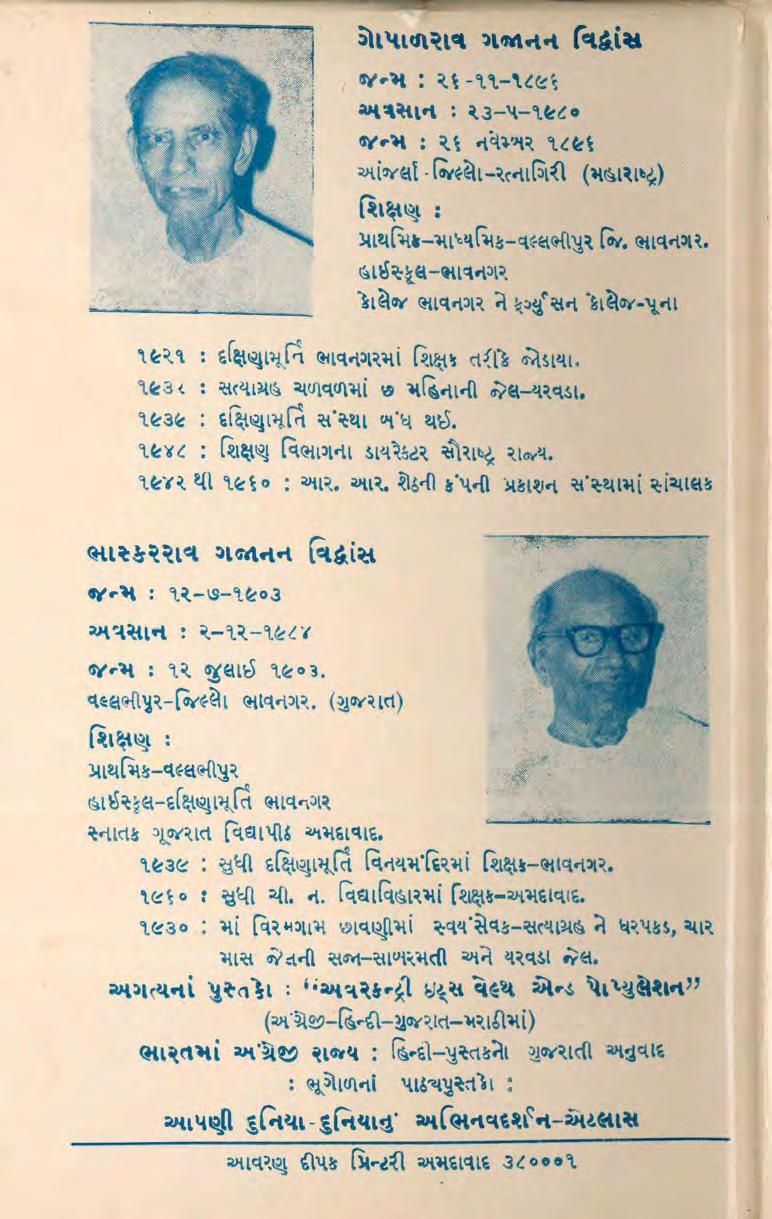 ગોપાળરાવ ગજાનન વિદ્વાંસ
જન્મ : ૨૬-૧૧-૧૮૯૬
અવસાન : ૨૩-૫-૧૯૮૦
જન્મ : ૨૬ નવેમ્બર ૧૮૯૬
આંજર્લા - જિલ્લો-રત્નાગિરી (મહારાષ્ટ્ર)
શિક્ષણ :
પ્રાથમિક-માધ્યમિક-વલ્લભીપુર જિ. ભાવનગર.
હાઈસ્કૂલ-ભાવનગર
કોલેજ ભાવનગર ને ફર્ગ્યુસન કોલેજ-પૂના
૧૯૨૧ : દક્ષિણામૂર્તિ ભાવનગરમાં શિક્ષક તરીકે જોડાયા.
૧૯૩૮ : સત્યાગ્રહ ચળવળમાં ૭ મહિનાની જેલ-યરવડા.
૧૯૩૯ : દક્ષિણામૂર્તિ સંસ્થા બંધ થઈ.
૧૯૪૮ : શિક્ષણ વિભાગના ડાયરેક્ટર સૌરાષ્ટ્ર રાજ્ય.
૧૯૪૨ થી ૧૯૬૦ : આર. આર. શેઠની કંપની પ્રકાશન સંસ્થામાં સંચાલક
ભાસ્કરરાવ ગજાનન વિદ્વાંસ
જન્મ : ૧૨-૭-૧૯૦૩
અવસાન : ૨-૧૨-૧૯૮૪
જન્મ : ૧૨ જુલાઈ ૧૯૦૩.
વલ્લભીપુર-જિલ્લો ભાવનગર. (ગુજરાત)
શિક્ષણ :
પ્રાથમિક-વલ્લભીપુર
હાઈસ્કૂલ-દક્ષિણામૂર્તિ ભાવનગર
સ્નાતક ગૂજરાત વિદ્યાપીઠ અમદાવાદ.
૧૯૩૯ : સુધી દક્ષિણામૂર્તિ વિનયમંદિરમાં શિક્ષક-ભાવનગર.
૧૯૬૦ : સુધી ચી. ન. વિદ્યાવિહારમાં શિક્ષક-અમદાવાદ.
૧૯૩૦ : માં વિરમગામ છાવણીમાં સ્વયંસેવક-સત્યાગ્રહ ને ધરપકડ, ચાર
માસ જેલની સજા-સાબરમતી અને યરવડા જેલ.
અગત્યનાં પુસ્તકો : “અવરકન્ટ્રી ઇટ્સ વેલ્થ એન્ડ પોપ્યુલેશન”
(અંગ્રેજી-હિન્દી-ગુજરાત-મરાઠીમાં)
ભારતમાં અંગ્રેજી રાજ્ય : હિન્દી-પુસ્તકનો ગુજરાતી અનુવાદ
: ભૂગોળનાં પાઠ્યપુસ્તકો :
આપણી દુનિયા-દુનિયાનું અભિનવદર્શન-એટલાસ
આવરણ દીપક પ્રિન્ટરી અમદાવાદ ૩૮૦૦૦૧